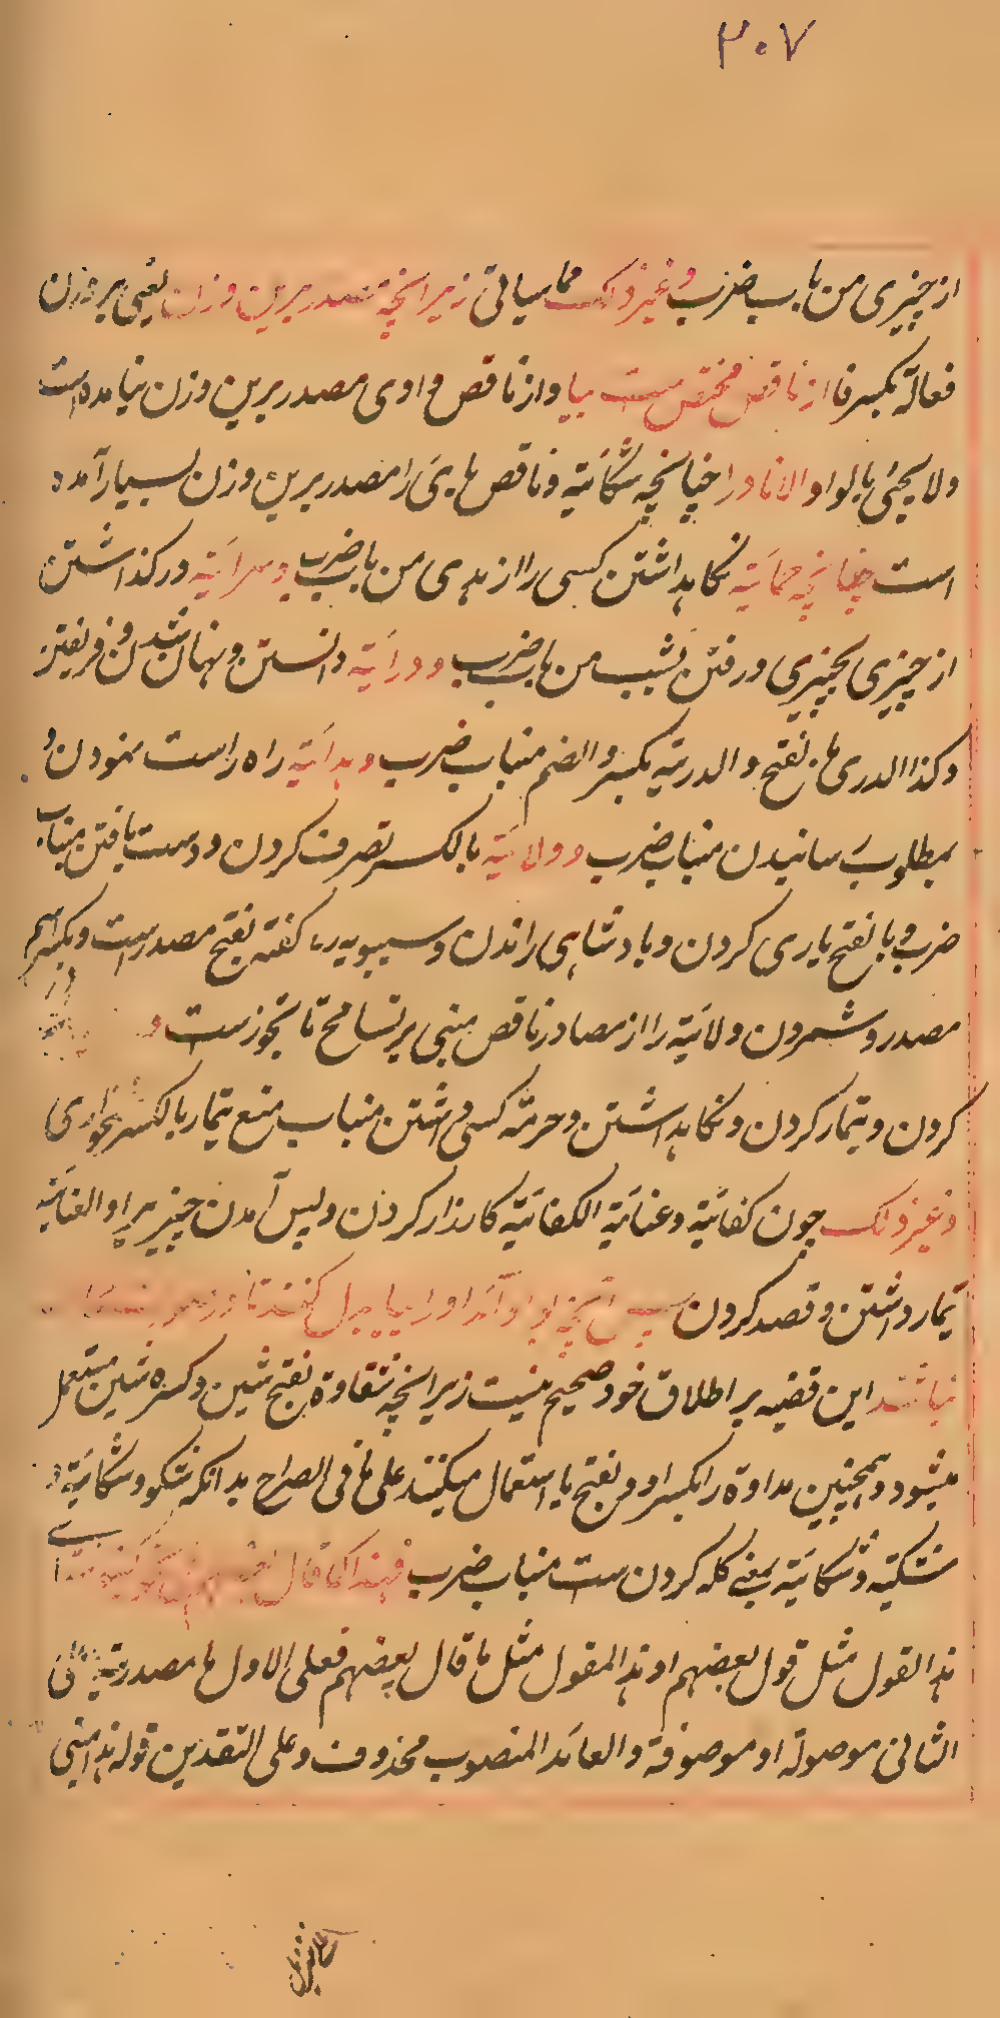 ۲۰۷
از چیزی من باب ضرب و غیر ذلک مما سیاتی زیرا نچه مصدر برین وزان یعنی بر وزن
فعالة بکسر فا از ناقص مختص ست بیا و از ناقص واوی مصدر برین وزن نیامده است
ولا یجیٔ بالواو الا نادرا چنانچه شکایة و ناقص یایی را مصدر برین وزن بسیار آمده
است چنانچه حمایة نگاهداشتن کسی را از بدی من باب ضرب و سرایة در گذاشتن
از چیزی بچیزی و رفتن بشب من باب ضرب و درایة دانستن و نهان شدن و فریفتن
وکذا الدری بالفتح والدریة بکسر والضم منباب ضرب و هدایة راه راست نمودن و
بمطلوب رسانیدن منباب ضرب و ولایة بالکسر تصرف کردن و دست یافتن منباب
ضرب و بالفتح یاری کردن و پادشاهی راندن و سیبویه گفته بفتح مصدر است و بکسر اسم
مصدر و شمردن ولایة را از مصادر ناقص مبنی بر تسامح تا تجوزست و
کردن و تیمار کردن و نگاهداشتن و حرمته کسی داشتن منباب منع تیمار بالکسر
و غیر ذلک چون کفایة و عنایة الکفایة کارگذار کردن و پس آمدن چیزی را و العنایة
تیمار داشتن و قصد کردن پس انچه بواو آمد او را بیا بدل کنند تا
نباشد این قضیه بر اطلاق خود صحیح نیست زیرا نچه شقاوة بفتح شین و کسره شین مستعمل
میشود و همچنین مداوة را بکسر او و بفتح یا استعمال میکنند علی ما فی الصراح بدانکه شکو و شکایة و
شکیة و شکایة بمعنی گله کردن ست منباب ضرب فهذا کما قال بعضهم
هذا القول مثل قول بعضهم او هذا المقول مثل ما قال بعضهم فعلی الاول ما مصدریة
الثانی موصولة او موصوفة والعائد المنصوب محذوف و علی التقدیرین قوله هذا مبنی